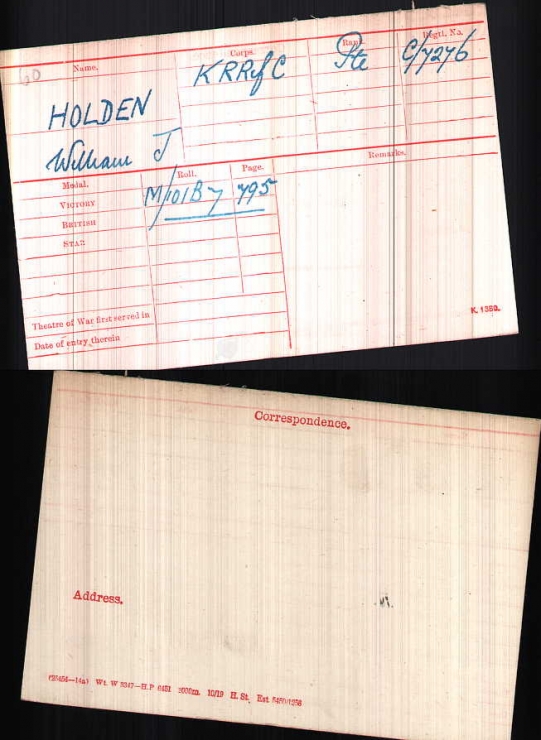 Name.
Corps.
Rank
Regtl. No.
HOLDEN
KRRofC
Pte
C/7276
William J
Medal.
Roll.
Page.
Remarks.
VICTORY
M/101B7
795
BRITISH
STAR
Theatre of War first served in
Date of entry therein
K. 1380.
Correspondence.
Address.
Wt. W 5347—H.P 10/19 H. St.